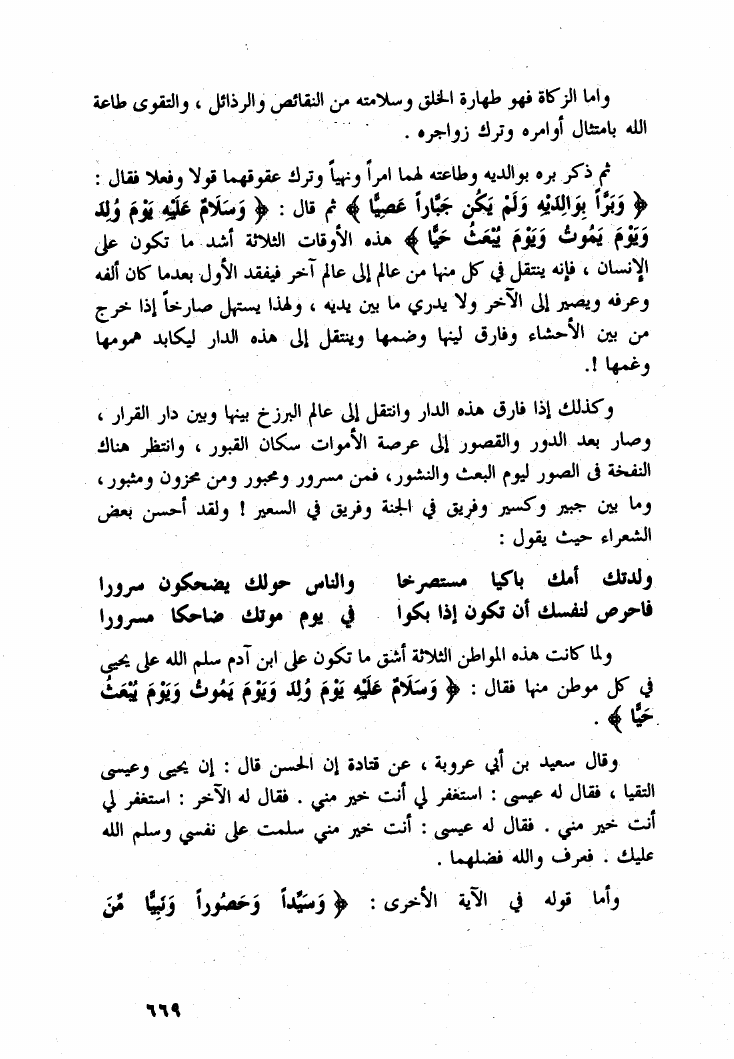 واما الزكاة فهو طهارة الخلق وسلامته من النقائص والرذائل ، والتقوى طاعة
الله بامتثال أوامره وترك زواجره .
ثم ذكر بره بوالديه وطاعته لهما امراً ونهياً وترك عقوقهما قولا وفعلا فقال :
﴿ وَبَرًّا بِوَالِدَيْهِ وَلَمْ يَكُن جَبَّاراً عَصِيًّا ﴾ ثم قال : ﴿ وَسَلَامٌ عَلَيْهِ يَوْمَ وُلِدَ
وَيَوْمَ يَمُوتُ وَيَوْمَ يُبْعَثُ حَيًّا ﴾ هذه الأوقات الثلاثة أشد ما تكون على
الإنسان ، فإنه ينتقل في كل منها من عالم إلى عالم آخر فيفقد الأول بعدما كان ألفه
وعرفه ويصير إلى الآخر ولا يدري ما بين يديه ، ولهذا يستهل صارخاً إذا خرج
من بين الأحشاء وفارق لينها وضمها وينتقل إلى هذه الدار ليكابد همومها
وغمها !.
وكذلك إذا فارق هذه الدار وانتقل إلى عالم البرزخ بينها وبين دار القرار ،
وصار بعد الدور والقصور إلى عرصة الأموات سكان القبور ، وانتظر هناك
النفخة فى الصور ليوم البعث والنشور، فمن مسرور ومحبور ومن محزون ومثبور،
وما بين جبير وكسير وفريق في الجنة وفريق في السعير ! ولقد أحسن بعض
الشعراء حيث يقول :
ولدتك أمك باكيا مستصرخا والناس حولك يضحكون سرورا
فاحرص لنفسك أن تكون إذا بكوا في يوم موتك ضاحكا مسرورا
ولما كانت هذه المواطن الثلاثة أشق ما تكون على ابن آدم سلم الله على يحيى
في كل موطن منها فقال : ﴿ وَسَلَامٌ عَلَيْهِ يَوْمَ وُلِدَ وَيَوْمَ يَمُوتُ وَيَوْمَ يُبْعَثُ
حَيًّا ﴾ .
وقال سعيد بن أبي عروبة ، عن قتادة إن الحسن قال : إن يحيى وعيسى
التقيا ، فقال له عيسى : استغفر لي أنت خير مني . فقال له الآخر : استغفر لي
أنت خير مني . فقال له عيسى : أنت خير مني سلمت على نفسي وسلم الله
عليك . فعرف والله فضلهما .
وأما قوله في الآية الأخرى : ﴿ وَسَيِّداً وَحَصُوراً وَنَبِيًّا مِّنَ
٦٦٩